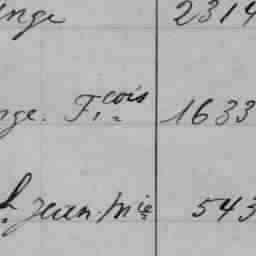 inge 2314
nge. F.cois 1633
Jean Mie 543